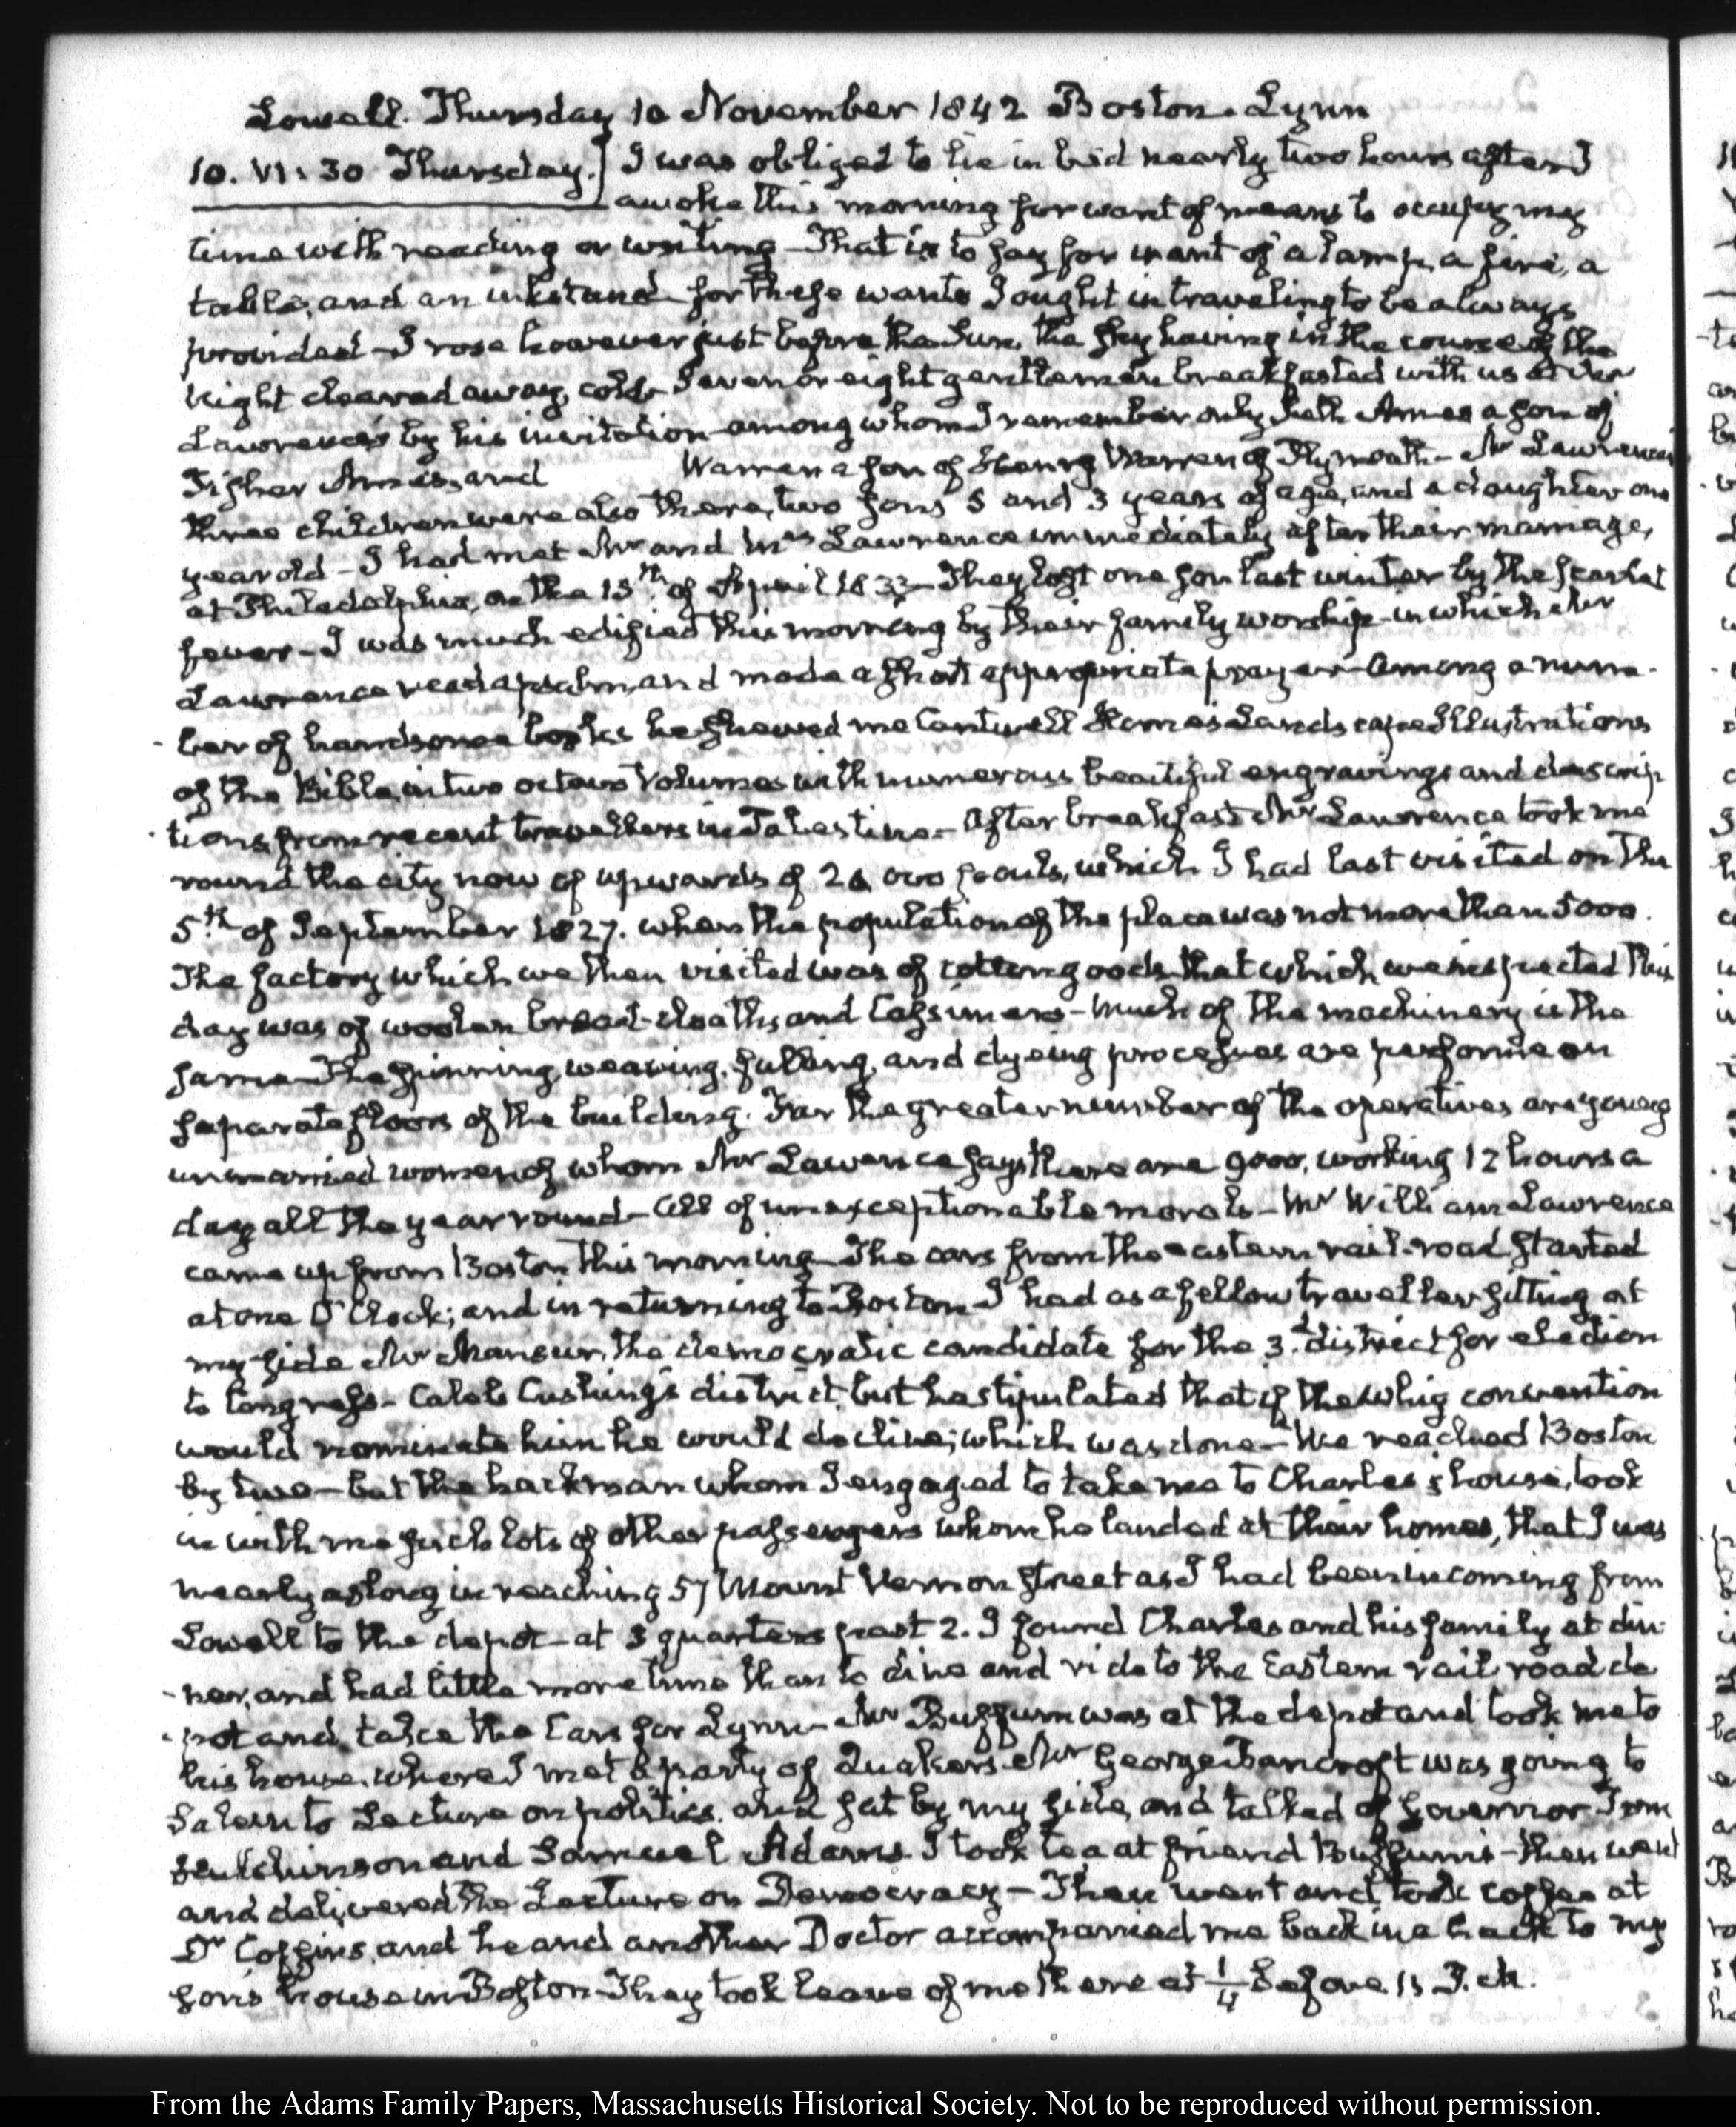 Lowell. Thursday 10 November 1842 Boston. Lynn
10. VI: 30 Thursday.] I was obliged to lie in bed nearly two hours after I
awoke this morning for want of means to occupy my
time with reading or writing – That is to say for want of a lamp, a fire, a
table, and an inkstand – for these wants I ought in traveling to be always
provided – I rose however just before the Sun, the sky having in the course of the
Night cleared away, cold – Seven or eight gentlemen breakfasted with us at Mr
Lawrence's by his invitation – among whom I remember only Seth Ames a son of
Fisher Ames, and Warren a son of Henry Warren of Plymouth – Mr Lawrence's
three children were also there, two sons 5 and 3 years of age, and a daughter one
year old – I had met Mr and Mrs Lawrence immediately after their marriage,
at Philadelphia, on the 13th of April 1833 – They lost one son last winter by the scarlet
fever – I was much edified this morning by their family worship – in which Mr
Lawrence read a psalm, and made a short appropriate prayer – Among a num-
-ber of handsome books he shewed me Landscape Illustrations
of the Bible, in two octavo Volumes with numerous beautiful engravings and descrip
-tions from recent travellers in Palestine – After breakfast Mr Lawrence took me
round the city now of upwards of 20,000 souls, which I had last visited on the
5th of September 1827. when the population of the place was not more than 5000.
The factory which we then visited was of cotton goods – that which we inspected this
day was of woolen broad-cloaths and Cassimers – much of the machinery is the
same – The spinning, weaving, fulling, and dyeing processes are performe on
separate floors of the building. Far the greater number of the operatives are young
unmarried women of whom Mr Lawrence says there are 9000, working 12 hours a
day all the year round – All of unexceptionable morals – Mr William Lawrence
came up from Boston this morning – The cars from the eastern rail-road started
at one O'Clock; and in returning to Boston I had as a fellow traveller sitting at
my side Mr Mansur, the democratic candidate for the 3d district for election
to Congress – Caleb Cushing's district, but he stipulated that if the whig convention
would nominate him he would decline; which was done – We reached Boston
by two – but the hackman whom I engaged to take me to Charles's house, took
in with me such lots of other passengers whom he landed at their homes, that I was
nearly as long in reaching 57 Mount Vernon Street as I had been in coming from
Lowell to the depot – at 3 quarters past 2. I found Charles and his family at din
-ner, and had little more time than to dine and ride to the Eastern rail road de
-pot and take the Cars for Lynn – Mr Buffum was at the depot and took me to
his house, where I met a party of Quakers – Mr George Bancroft was going to
Salem to Lecture on politics. and sat by my side, and talked of Governor Tom
Hutchinson and Samuel Adams. I took tea at friend Buffum's – then went
and delivered the Lecture on Democracy – Then went and took coffee at
Dr Coffins, and he and another Doctor accompanied me back in a hack to my
son's house in Boston – They took leave of me there at 1/4 before 11 P.M.
From the Adams Family Papers, Massachusetts Historical Society. Not to be reproduced without permission.